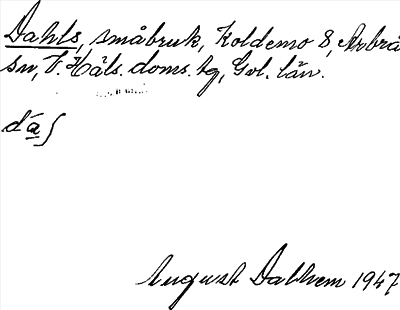 Dahls, småbruk, Koldemo 8, Arbrå
sn, V. Häls. doms. tg, Gvl. län.
August Dalhem 1947